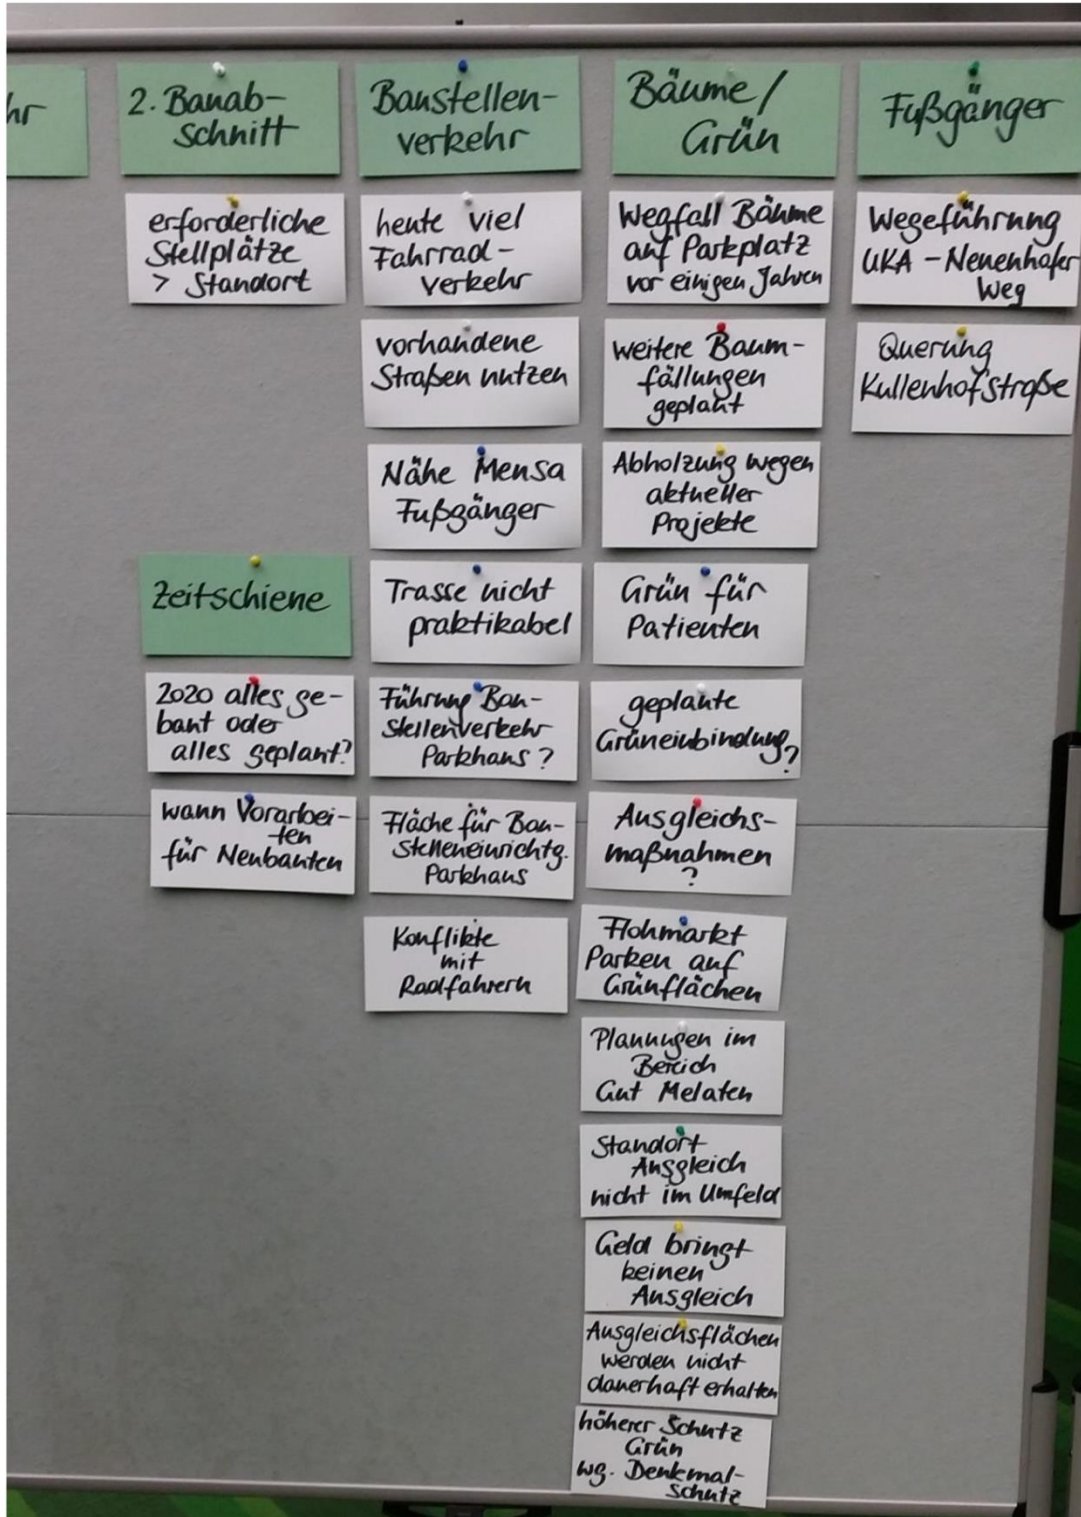 hr
2. Bauab-
schnitt
erforderliche
Stellplätze
> Standort
Zeitschiene
2020 alles ge-
baut oder
alles geplant?
wann Vorarbei-
ten
für Neubauten
Baustellen-
verkehr
heute viel
Fahrrad-
verkehr
vorhandene
Straßen nutzen
Nähe Mensa
Fußgänger
Trasse nicht
praktikabel
Führung Bau-
stellenverkehr
Parkhaus?
Fläche für Bau-
stelleneinrichtg.
Parkhaus
Konflikte
mit
Radfahrern
Bäume/
Grün
Wegfall Bäume
auf Parkplatz
vor einigen Jahren
weitere Baum-
fällungen
geplant
Abholzung wegen
aktueller
Projekte
Grün für
Patienten
geplante
Grüneinbindung?
Ausgleichs-
maßnahmen
?
Flohmarkt
Parken auf
Grünflächen
Planungen im
Bereich
Gut Melaten
Standort
Ausgleich
nicht im Umfeld
Geld bringt
keinen
Ausgleich
Ausgleichsflächen
werden nicht
dauerhaft erhalten
höherer Schutz
Grün
wg. Denkmal-
schutz
Fußgänger
Wegeführung
UKA - Neuenhofer
Weg
Querung
Kullenhofstraße